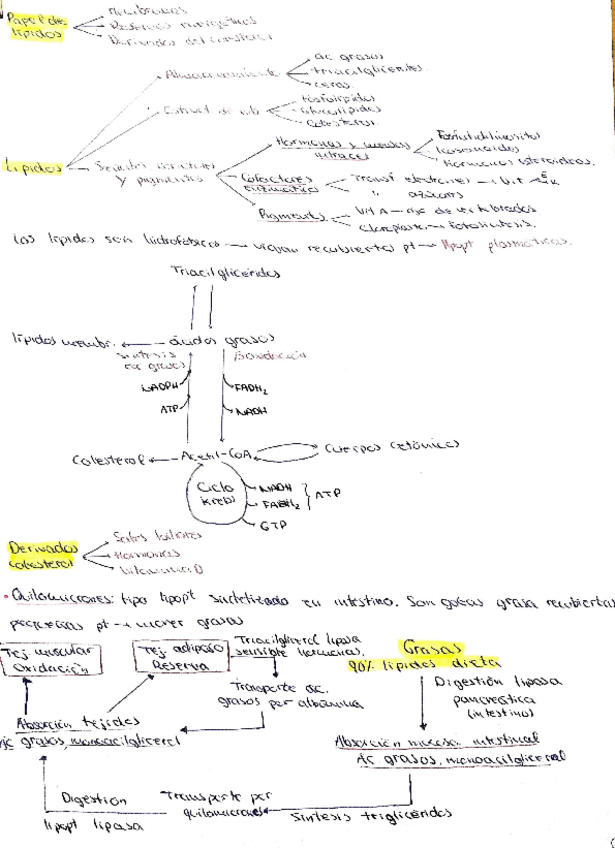 Papel de lípidos
Membranas
Reservas energéticas
Derivados del colesterol
Lípidos
Almacenamiento
ac grasos
triacilgliceridos
ceras
Estruct de mb
fosfolípidos
Glucolípidos
Colesterol
Señales
y pigmentos
Hormonas y
Fosfatidilinositol
Hormonas esteroideas.
Cofactores enzimáticos
Transf electrones — Vit E, K
" azúcares
Pigments
Vit A — ojo de vertebrados
Cloroplasto — Fotosíntesis.
Los lípidos son hidrofóbicos → viajan recubiertos pt → lipopt plasmáticas.
Triacilglicéridos
lípidos membr. ← ácidos grasos
síntesis ac grasos
β-oxidación
NADPH
ATP
FADH2
NADH
Colesterol ← Acetil-CoA
Cuerpos cetónicos
Ciclo Krebs
NADH
FADH2
ATP
GTP
Derivados colesterol
Sales biliares
Hormonas
Vitamina D
• Quilomicrones: tipo lipopt sintetizado en intestino. Son gotas grasa recubiertas
pequeñas pt → mover grasas
Tej muscular
Oxidación
Tej adiposo
Reserva
Triacilglicerol lipasa
sensible hormonas.
Grasas
90% lípidos dieta
Transporte ac.
grasos por albúmina
Digestión lipasa
pancreática
(intestino)
Absorción tejidos
ac grasos, monoacilglicerol
Absorción mucosa intestinal
Ac grasos, monoacilglicerol
Digestión
lipopt lipasa
Transporte por
quilomicrones
Síntesis triglicéridos